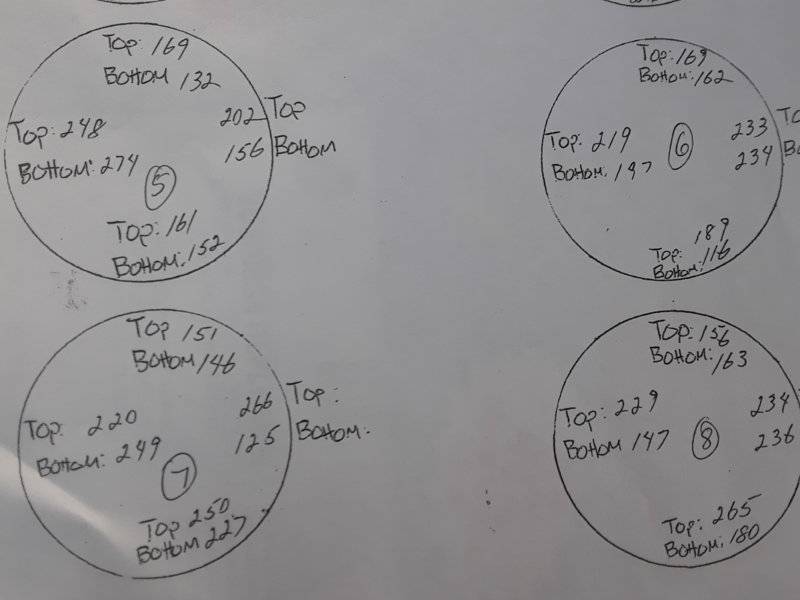 Top: 169
Bottom 132
Top: 248
202 Top
Bottom: 274
156 Bottom
5
Top: 161
Bottom: 152
Top: 169
Bottom: 162
Top: 219
233
Bottom: 197
234
6
189
Top:
Bottom: 116
Top 151
Bottom 146
Top: 220
266 Top:
Bottom: 249
125 Bottom:
7
Top 250
Bottom 227
Top: 156
Bottom: 163
Top: 229
234
Bottom 147
236
8
Top: 265
Bottom: 180